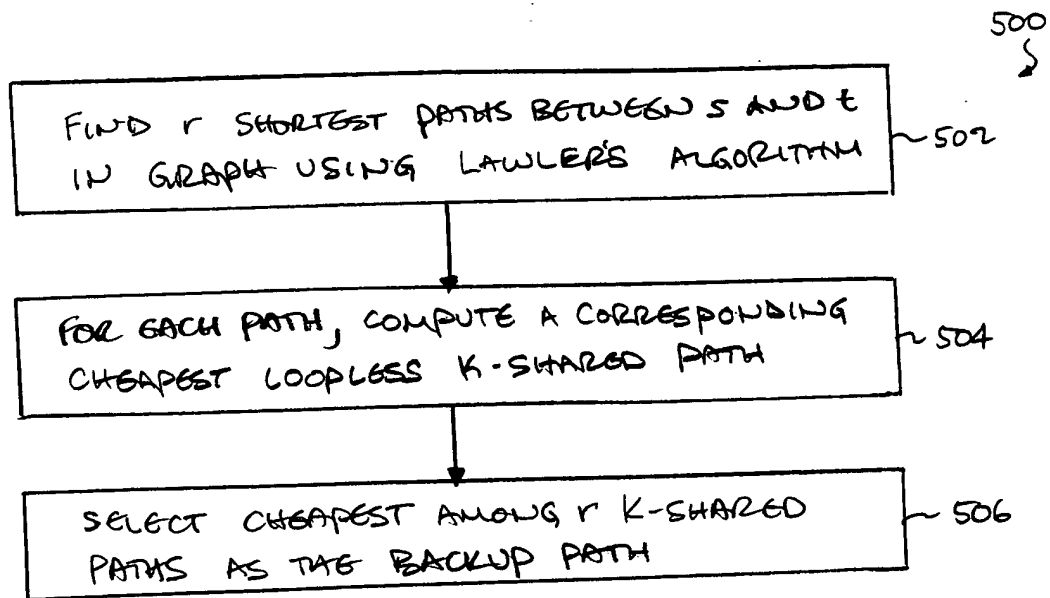 500
FIND r SHORTEST PATHS BETWEEN s AND t
IN GRAPH USING LAWLER'S ALGORITHM
502
FOR EACH PATH, COMPUTE A CORRESPONDING
CHEAPEST LOOPLESS K-SHARED PATH
504
SELECT CHEAPEST AMONG r K-SHARED
PATHS AS THE BACKUP PATH
506